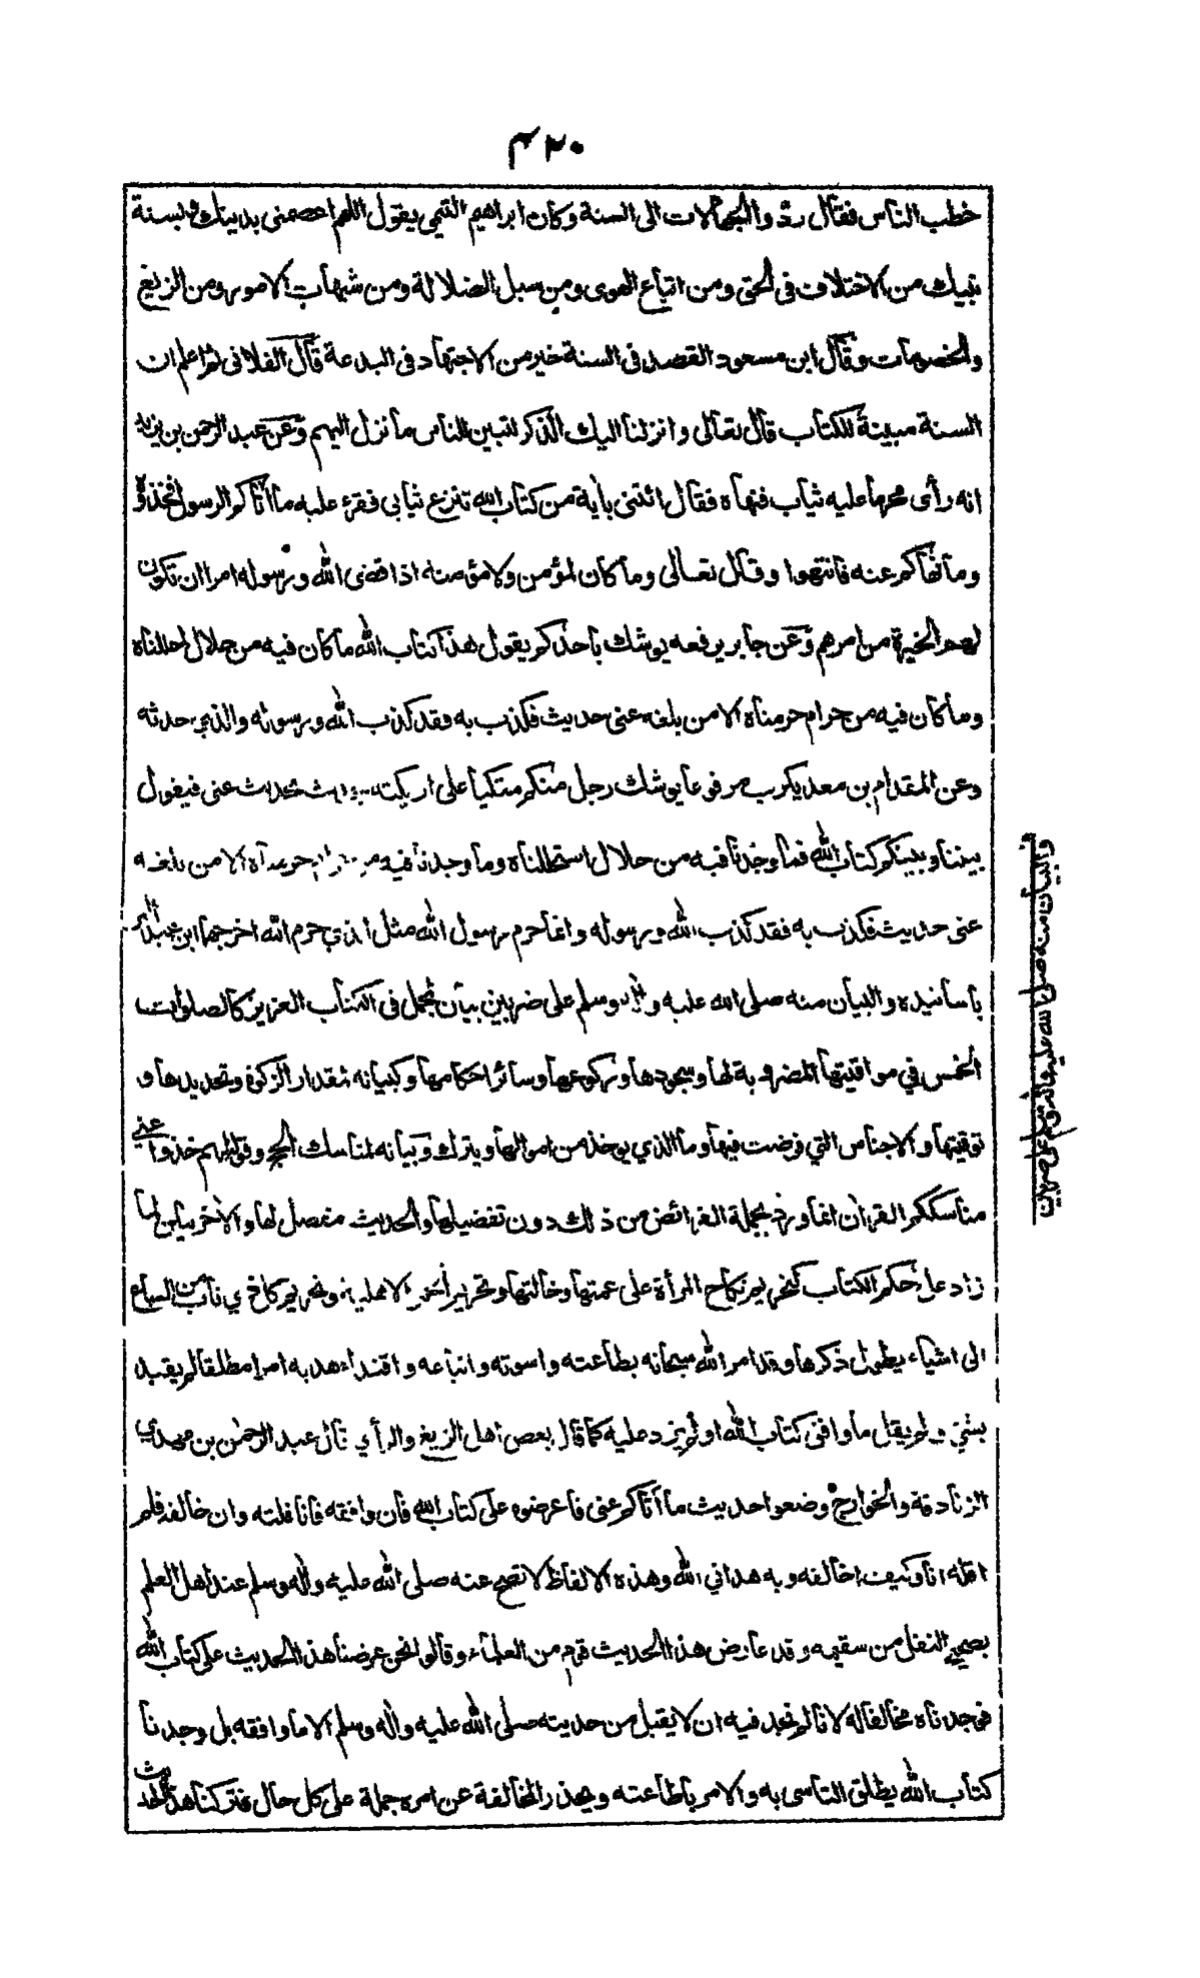 ٣٢٠
خطب الناس فقال ردّوا الجهالات الى السنة وكان ابراهيم التيمي يقول اللهم اعصمنى بدينك وبسنة
نبيك من الاختلاف فى الحق ومن اتباع الهوى ومن سبل الضلالة ومن شبهات الامور ومن الزيغ
والخصومات وقال ابن مسعود القصد فى السنة خير من الاجتهاد فى البدعة قال الفلانى ثم اعلم ان
السنة مبينة للكتاب قال تعالى وانزلنا اليك الذكر لتبين للناس ما نزل اليهم وعن عبد الرحمن بن يزيد
انه رأى محرما عليه ثياب فنهاه فقال ائتنى بأية من كتاب الله تنزع ثيابى فقرء عليه ما أتاكم الرسول فخذوه
وما نهاكم عنه فانتهوا وقال تعالى وما كان لمؤمن ولا مؤمنة اذا قضى الله ورسوله امرا ان تكون
لهم الخيرة من امرهم وعن جابر يرفعه يوشك بأحدكم يقول هذا كتاب الله ما كان فيه من حلال احللناه
وما كان فيه من حرام حرمناه الا من بلغه عنى حديث فكذب به فقد كذب الله ورسوله والذي حدثه
وعن المقدام بن معديكرب مرفوعا يوشك رجل منكم متكيا على اريكته يحدث بحديث عنى فيقول
بيننا وبينكم كتاب الله فما وجدنا فيه من حلال استحللناه وما وجدنا فيه من حرام حرمناه الا من بلغه
عنى حديث فكذب به فقد كذب الله ورسوله وانما حرم رسول الله مثل الذي حرم الله اخرجها ابن عبد البر
بأسانيده والبيان منه صلى الله عليه وأله وسلم على ضربين بيان مجمل فى الكتاب العزيز كالصلوات
الخمس في مواقيتها المضروبة لها وسجودها وركوعها وسائر احكامها وكبيانه لمقدار الزكوة وتحديدها و
توقيتها والاجناس التي فرضت فيها وما الذي يوخذ من اموالها ويترك وبيانه لمناسك الحج وقوله لهم خذوا عني
مناسككم القرأن انما ورد بجملة الفرائض من ذلك دون تفضيلها والحديث مفصل لها والأخر بيان لما
زاد على حكم الكتاب كتحريم نكاح المرأة على عمتها وخالتها وتحريم الحمر الاهلية وتحريم كل ذي ناب من السباع
الى اشياء يطول ذكرها وقد امر الله سبحانه بطاعته واسوته واتباعه واقتداء هديه امرا مطلقا لم يقيد
بشئ ولم يقل ما وافق كتاب الله او لم يزد عليه كما قال بعض اهل الزيغ والرأي قال عبد الرحمن بن مهدي
الزنادقة والخوارج وضعوا حديث ما أتاكم عنى فاعرضوه على كتاب الله فان وافقه فانا قلته وان خالفه فلم
اقله انا وكيف اخالفه وبه هداني الله وهذه الالفاظ لا تصح عنه صلى الله عليه وأله وسلم عند اهل العلم
بصحيح النقل من سقيمه وقد عارض هذا الحديث قوم من العلماء وقالوا نحن عرضنا هذا الحديث على كتاب الله
فوجدناه مخالفا له لانا لم نجد فيه ان لا يقبل من حديثه صلى الله عليه وأله وسلم الا ما وافقه بل وجدنا
كتاب الله يطلق التأسى به والامر بأطاعته ويحذر المخالفة عن امره جملة على كل حال فتركنا هذا الحديث
والبيان منه صلى الله عليه وأله وسلم على ضربين